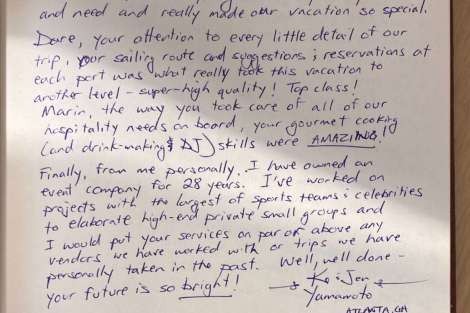 and need and really made our vacation so special.
Dare, your attention to every little detail of our
trip, your sailing route and suggestions & reservations at
each port was what really took this vacation to
another level - super-high quality! Top class!
Marin, the way you took care of all of our
hospitality needs on board, your gourmet cooking
(and drink-making & DJ) skills were AMAZING!
Finally, from me personally, I have owned an
event company for 28 years. I've worked on
projects with the largest of sports teams & celebrities
to elaborate high-end private small groups and
I would put your services on par or above any
vendors we have worked with or trips we have
personally taken in the past. Well, well done -
your future is so bright!
Ke & Jen
Yamamoto
ATLANTA, GA